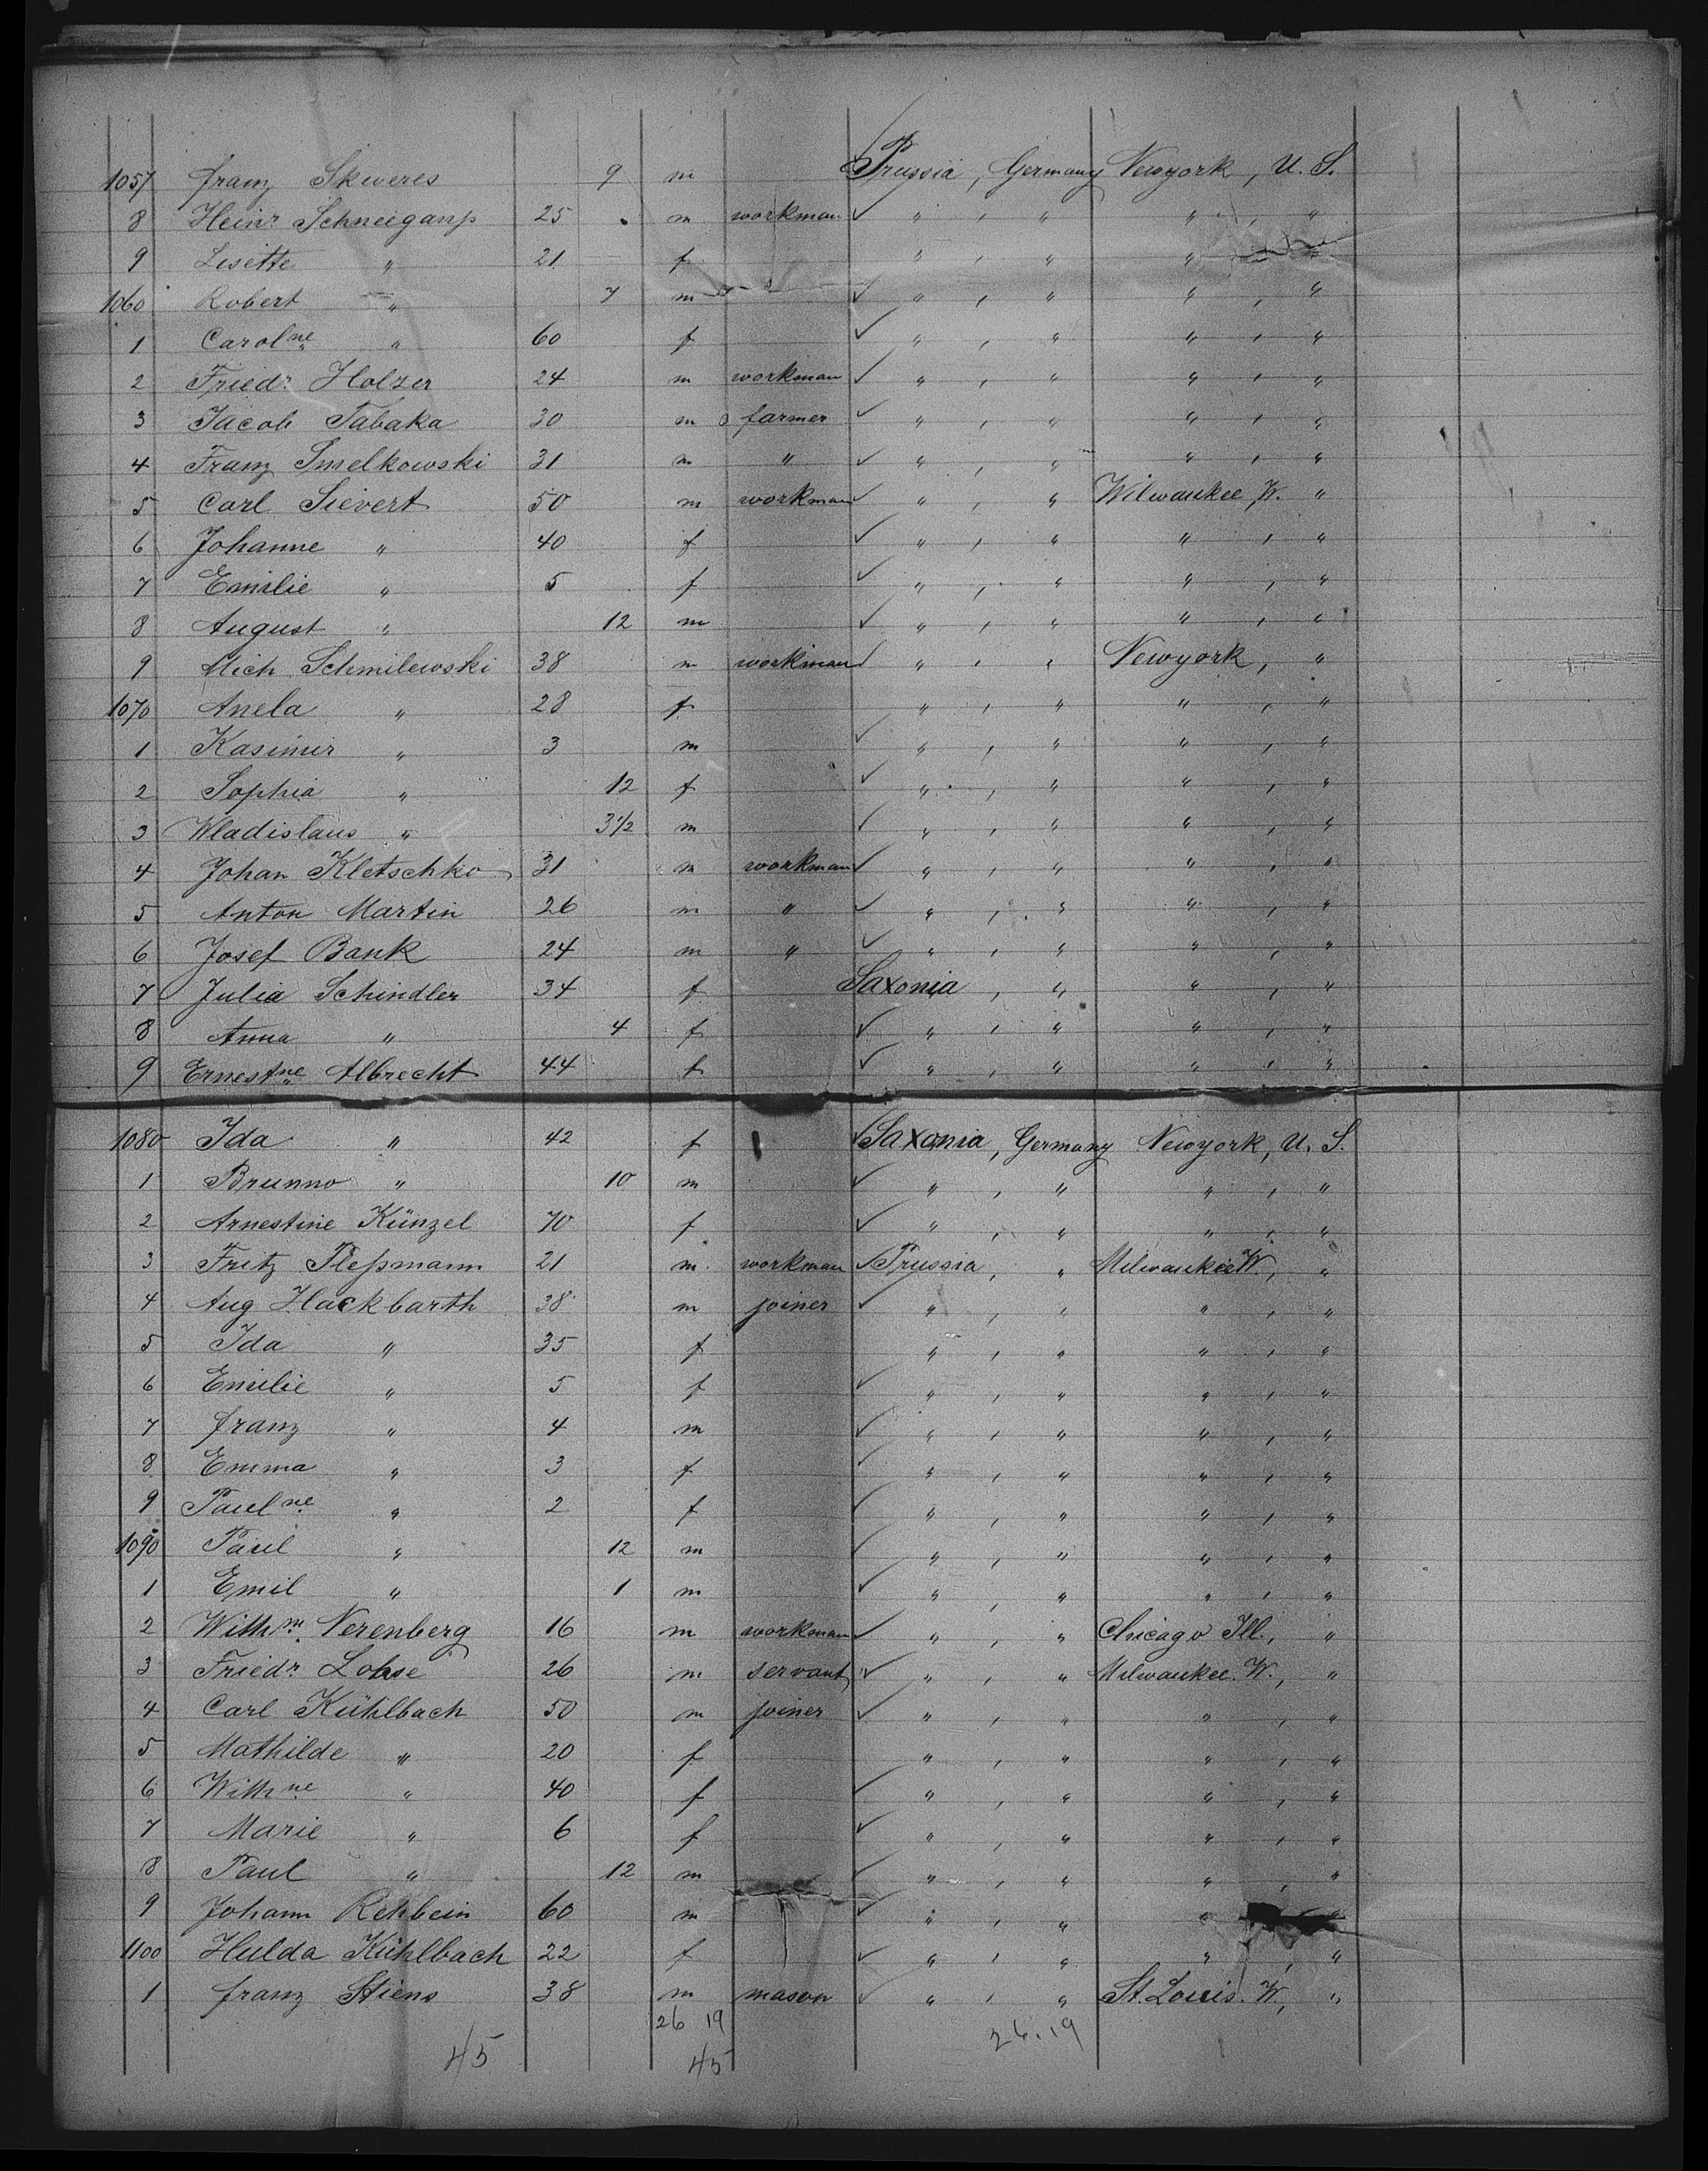 1057 franz Skweres 9 m Prussia, Germany Newyork, U. S.
8 Heinr. Schneiganss 25 m workman " , " " , "
9 Lisette " 21 f " , " " , "
1060 Robert " 7 m " , " " , "
1 Carolne " 60 f " , " " , "
2 Friedr. Holzer 24 m workman " , " " , "
3 Jacob Tabaka 30 m farmer " , " " , "
4 Franz Smelkowski 31 m " " , " " , "
5 Carl Sievert 50 m workman " , " Milwaukee, W. "
6 Johanne " 40 f " , " " , "
7 Emilie " 5 f " , " " , "
8 August " 12 m " , " " , "
9 Mich Schmilewski 38 m workman " , " Newyork, "
1070 Anela " 28 f " , " " , "
1 Kasimir " 3 m " , " " , "
2 Sophia " 12 f " , " " , "
3 Wladislaus " 3½ m " , " " , "
4 Johan Kletschko 31 m workman " , " " , "
5 Anton Martin 26 m " " , " " , "
6 Josef Bank 24 m " " , " " , "
7 Julia Schindler 34 f Saxonia , " " , "
8 Anna " 4 f " , " " , "
9 Ernestne Albrecht 44 f " , " " , "
1080 Ida " 42 f Saxonia, Germany Newyork, U. S.
1 Brunno " 10 m " , " " , "
2 Arnestine Künzel 70 f " , " " , "
3 Fritz Plessmann 21 m workman Prussia, " Milwaukee W., "
4 Aug Hackbarth 38 m joiner " , " " , "
5 Ida " 35 f " , " " , "
6 Emilie " 5 f " , " " , "
7 franz " 4 m " , " " , "
8 Emma " 3 f " , " " , "
9 Paulne " 2 f " , " " , "
1090 Paul " 12 m " , " " , "
1 Emil " 1 m " , " " , "
2 Wilhm. Nerenberg 16 m workman " , " Chicago Ill., "
3 Friedr. Lohse 26 m servant " , " Milwaukee. W., "
4 Carl Kühlbach 50 m joiner " , " " , "
5 Mathilde " 20 f " , " " , "
6 Wilhne " 40 f " , " " , "
7 Marie " 6 f " , " " , "
8 Paul " 12 m " , " " , "
9 Johann Rehbein 60 m " , " " "
1100 Hulda Kühlbach 22 f " , " " , "
1 franz Stiens 38 m mason " , " St. Louis. W., "
26 19 26.19
45 45